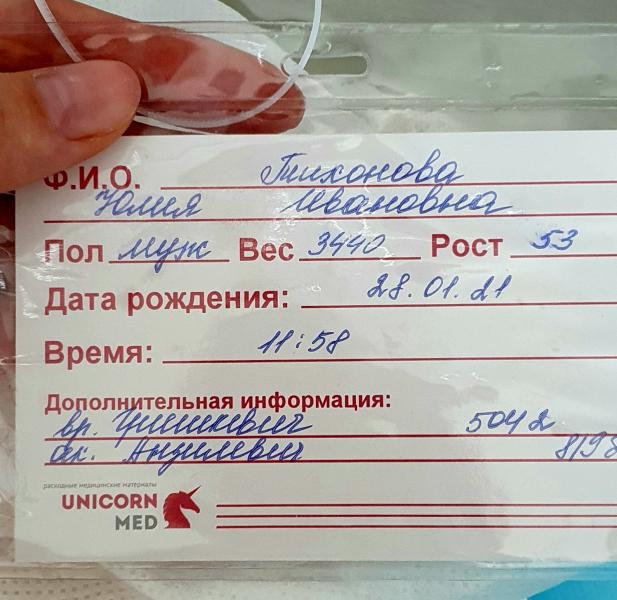 Ф.И.О. Тихонова
Юлия Ивановна
Пол муж Вес 3440 Рост 53
Дата рождения: 28.01.21
Время: 11:58
Дополнительная информация:
вр. 5042
ак. Анцилевич 8/98
расходные медицинские материалы
UNICORN
MED